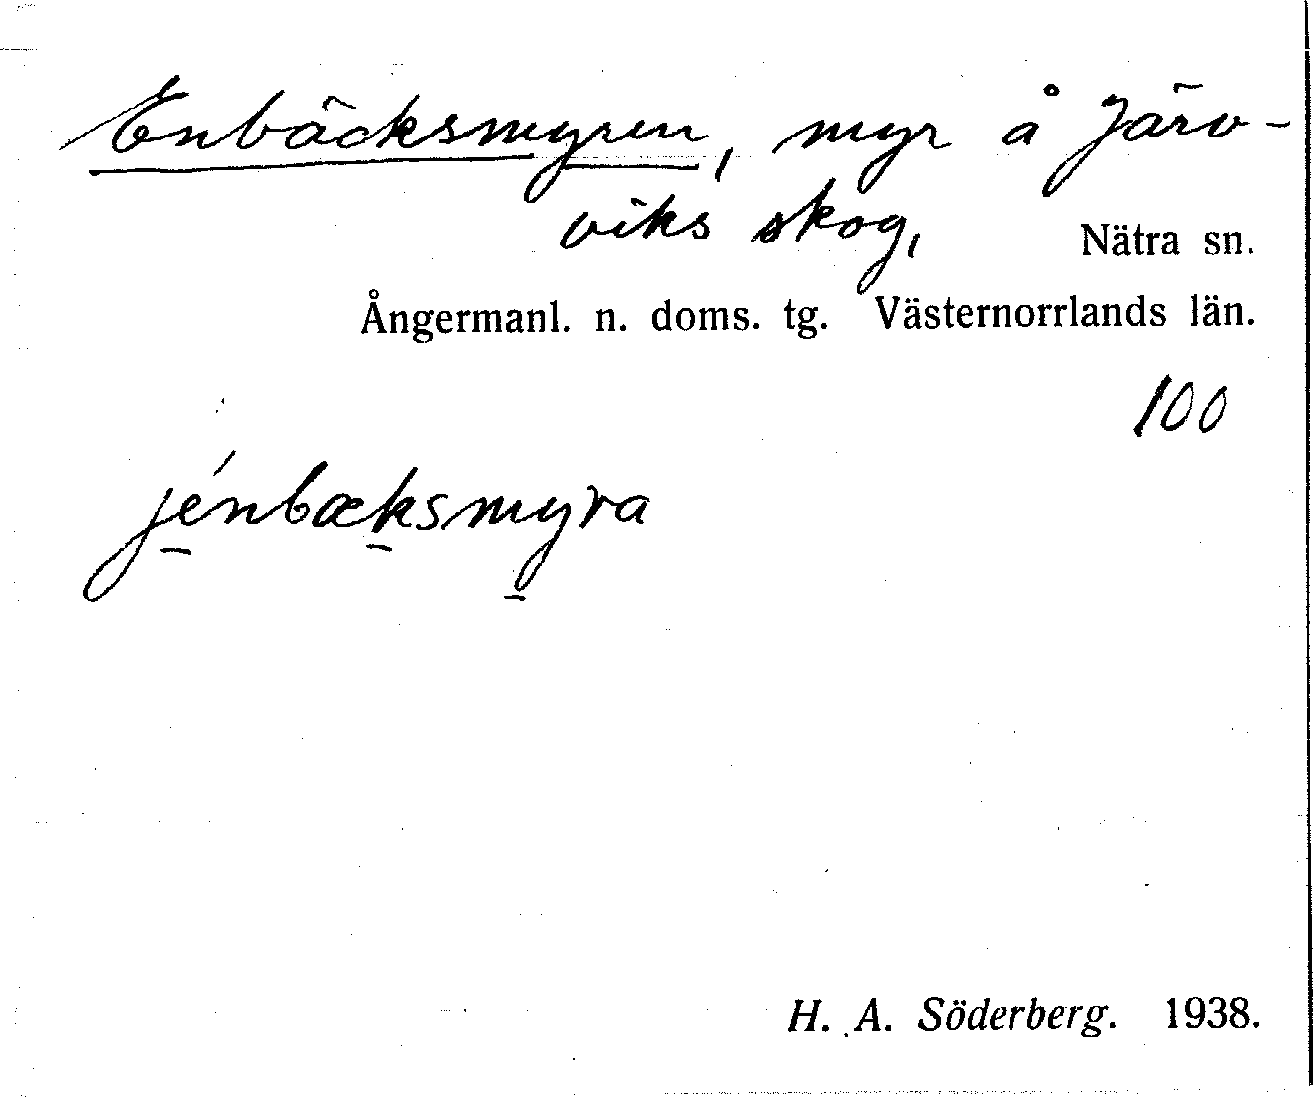 Enbäcksmyren, myr å Järv-
viks skog, Nätra sn.
Ångermanl. n. doms. tg. Västernorrlands län.
100
jénbæksmyra
H. A. Söderberg. 1938.